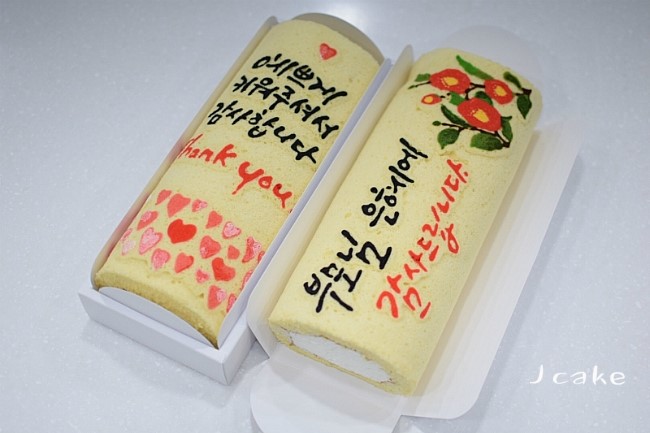 예쁘게
키워주셔서
감사합니다
Thank you.
부모님 은혜에
감사드립니다
J cake